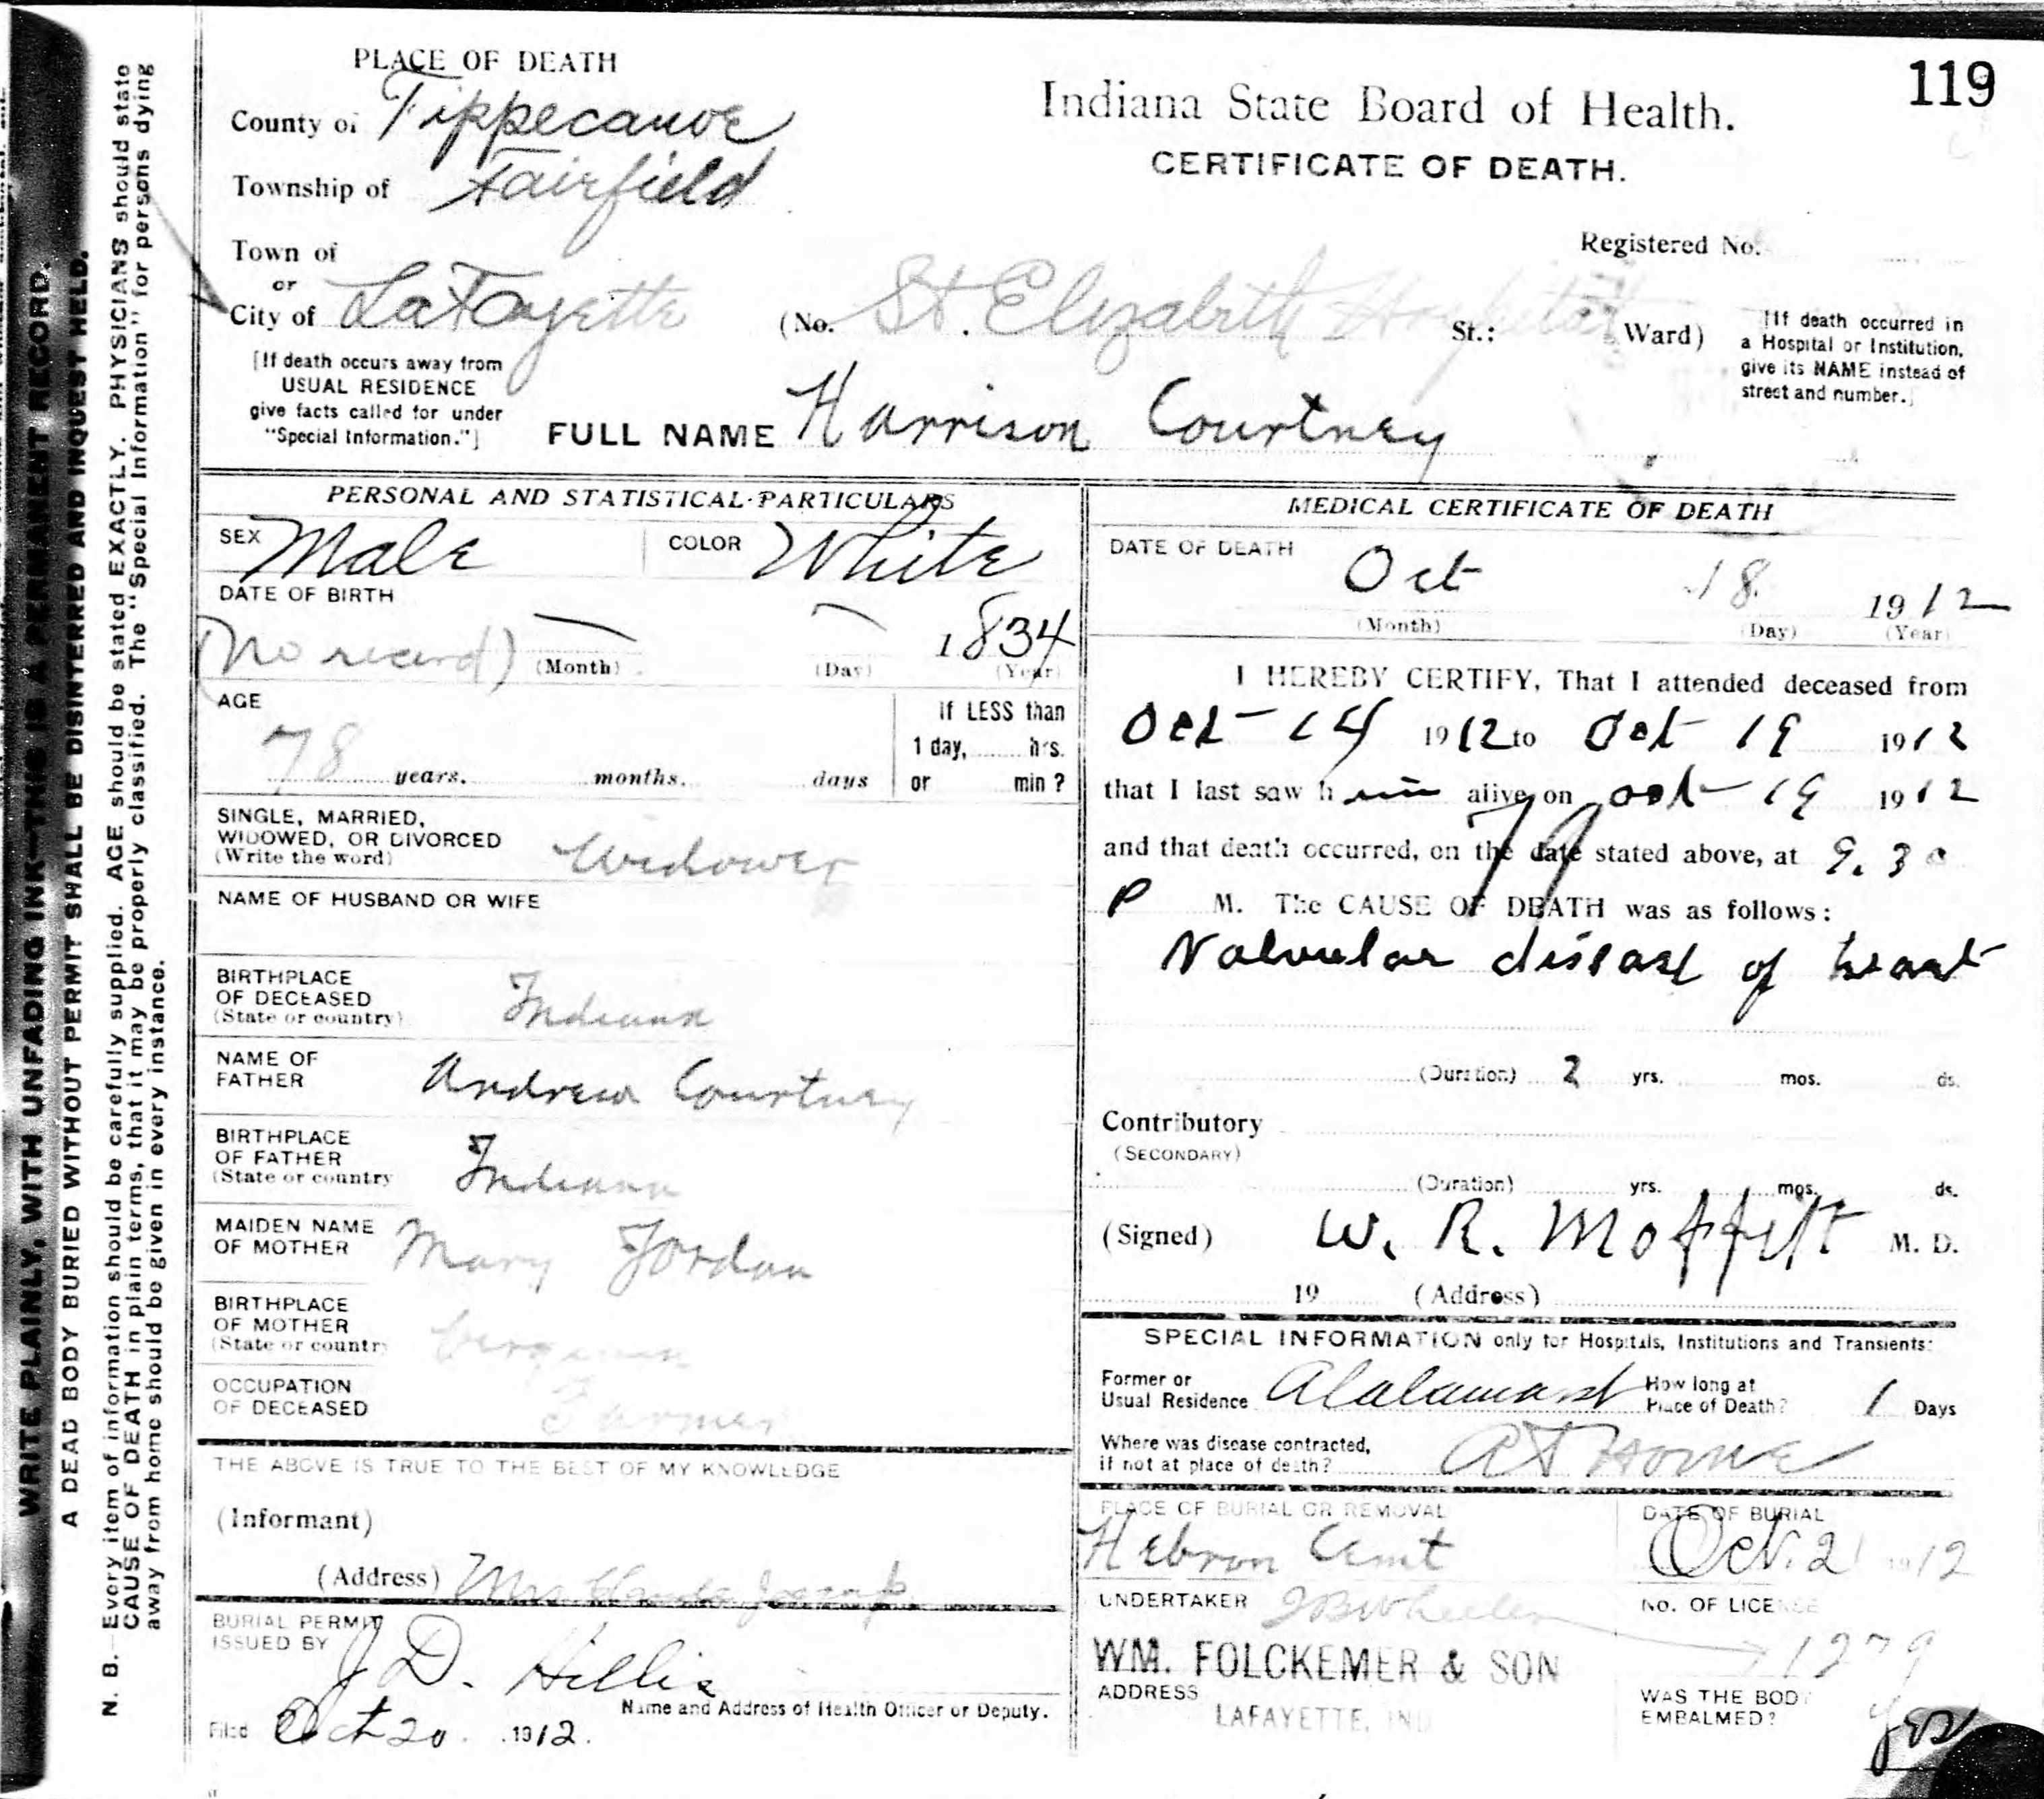 119
PLACE OF DEATH
County of Tippecanoe
Township of Fairfield
Town of
or
City of LaFayette (No. St. Elizabeth Hospital St.; Ward)
[If death occurs away from
USUAL RESIDENCE
give facts called for under
"Special Information."]
Indiana State Board of Health.
CERTIFICATE OF DEATH.
Registered No.
[If death occurred in
a Hospital or Institution,
give its NAME instead of
street and number.]
FULL NAME Harrison Courtney
PERSONAL AND STATISTICAL PARTICULARS
SEX Male COLOR White
DATE OF BIRTH
(No record) — — 1834
(Month) (Day) (Year)
AGE
78 years. months. days
If LESS than
1 day, hrs.
or min?
SINGLE, MARRIED,
WIDOWED, OR DIVORCED
(Write the word) Widower
NAME OF HUSBAND OR WIFE
BIRTHPLACE
OF DECEASED
(State or country) Indiana
NAME OF
FATHER Andrew Courtney
BIRTHPLACE
OF FATHER
(State or country Indiana
MAIDEN NAME
OF MOTHER Mary Jordan
BIRTHPLACE
OF MOTHER
(State or country Virginia
OCCUPATION
OF DECEASED Farmer
THE ABOVE IS TRUE TO THE BEST OF MY KNOWLEDGE
(Informant)
(Address) Mrs
BURIAL PERMIT
ISSUED BY J D. Hillis
Name and Address of Health Officer or Deputy.
Filed Oct 20. 1912.
MEDICAL CERTIFICATE OF DEATH
DATE OF DEATH
Oct 18 1912
(Month) (Day) (Year)
I HEREBY CERTIFY, That I attended deceased from
Oct 14 1912 to Oct 19 1912
that I last saw him alive on Oct 19 1912
and that death occurred, on the date stated above, at 9.30
P M. The CAUSE OF DEATH was as follows:
Valvular disease of heart
(Duration) 2 yrs. mos. ds.
Contributory
(SECONDARY)
(Duration) yrs. mos. ds.
(Signed) W. R. Moffitt M. D.
19 (Address)
SPECIAL INFORMATION only for Hospitals, Institutions and Transients:
Former or
Usual Residence
How long at
Place of Death? 1 Days
Where was disease contracted,
if not at place of death? At Home
PLACE OF BURIAL OR REMOVAL
Hebron Cemt
DATE OF BURIAL
Oct. 21 1912
UNDERTAKER J B Wheeler
WM. FOLCKEMER & SON
ADDRESS
LAFAYETTE, IND
NO. OF LICENSE
1279
WAS THE BODY
EMBALMED? Yes
WRITE PLAINLY, WITH UNFADING INK—THIS IS A PERMANENT RECORD.
A DEAD BODY BURIED WITHOUT PERMIT SHALL BE DISINTERRED AND INQUEST HELD.
N. B.—Every item of information should be carefully supplied. AGE should be stated EXACTLY. PHYSICIANS should state
CAUSE OF DEATH in plain terms, that it may be properly classified. The "Special Information" for persons dying
away from home should be given in every instance.